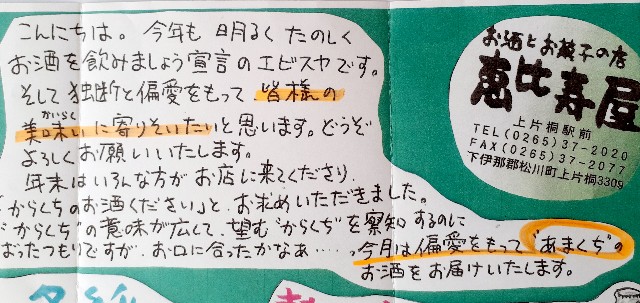 こんにちは。今年も明るくたのしく
お酒を飲みましょう宣言のエビスヤです。
そして独断と偏愛をもって皆様の
美味い(がいらく)に寄りそいたいと思います。どうぞ
よろしくお願いいたします。
年末はいろんな方がお店に来てくださり、
"からくちのお酒ください"と、お求めいただきました。
"からくち"の意味が広くて、望む"からくち"を察知するのに
がばったつもりですが、お口に合ったかなぁ……。
今月は偏愛をもって"あまくち"の
お酒をお届けいたします。
お酒とお菓子の店
恵比寿屋
上片桐駅前
TEL(0265)37-2020
FAX(0265)37-2077
下伊那郡松川町上片桐3309